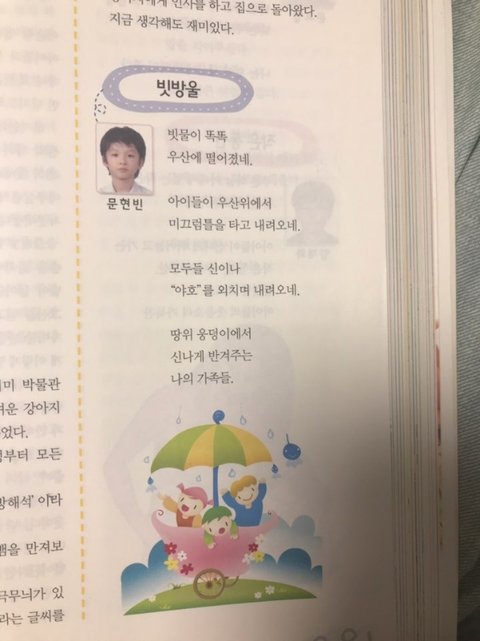 에게 인사를 하고 집으로 돌아왔다.
지금 생각해도 재미있다.
빗방울
문현빈
빗물이 똑똑
우산에 떨어졌네.
아이들이 우산위에서
미끄럼틀을 타고 내려오네.
모두들 신이나
“야호”를 외치며 내려오네.
땅위 웅덩이에서
신나게 반겨주는
나의 가족들.
박물관
강아지
었다.
부터 모든
방해석’ 이라
뱀을 만져보
극무늬가 있
라는 글씨를